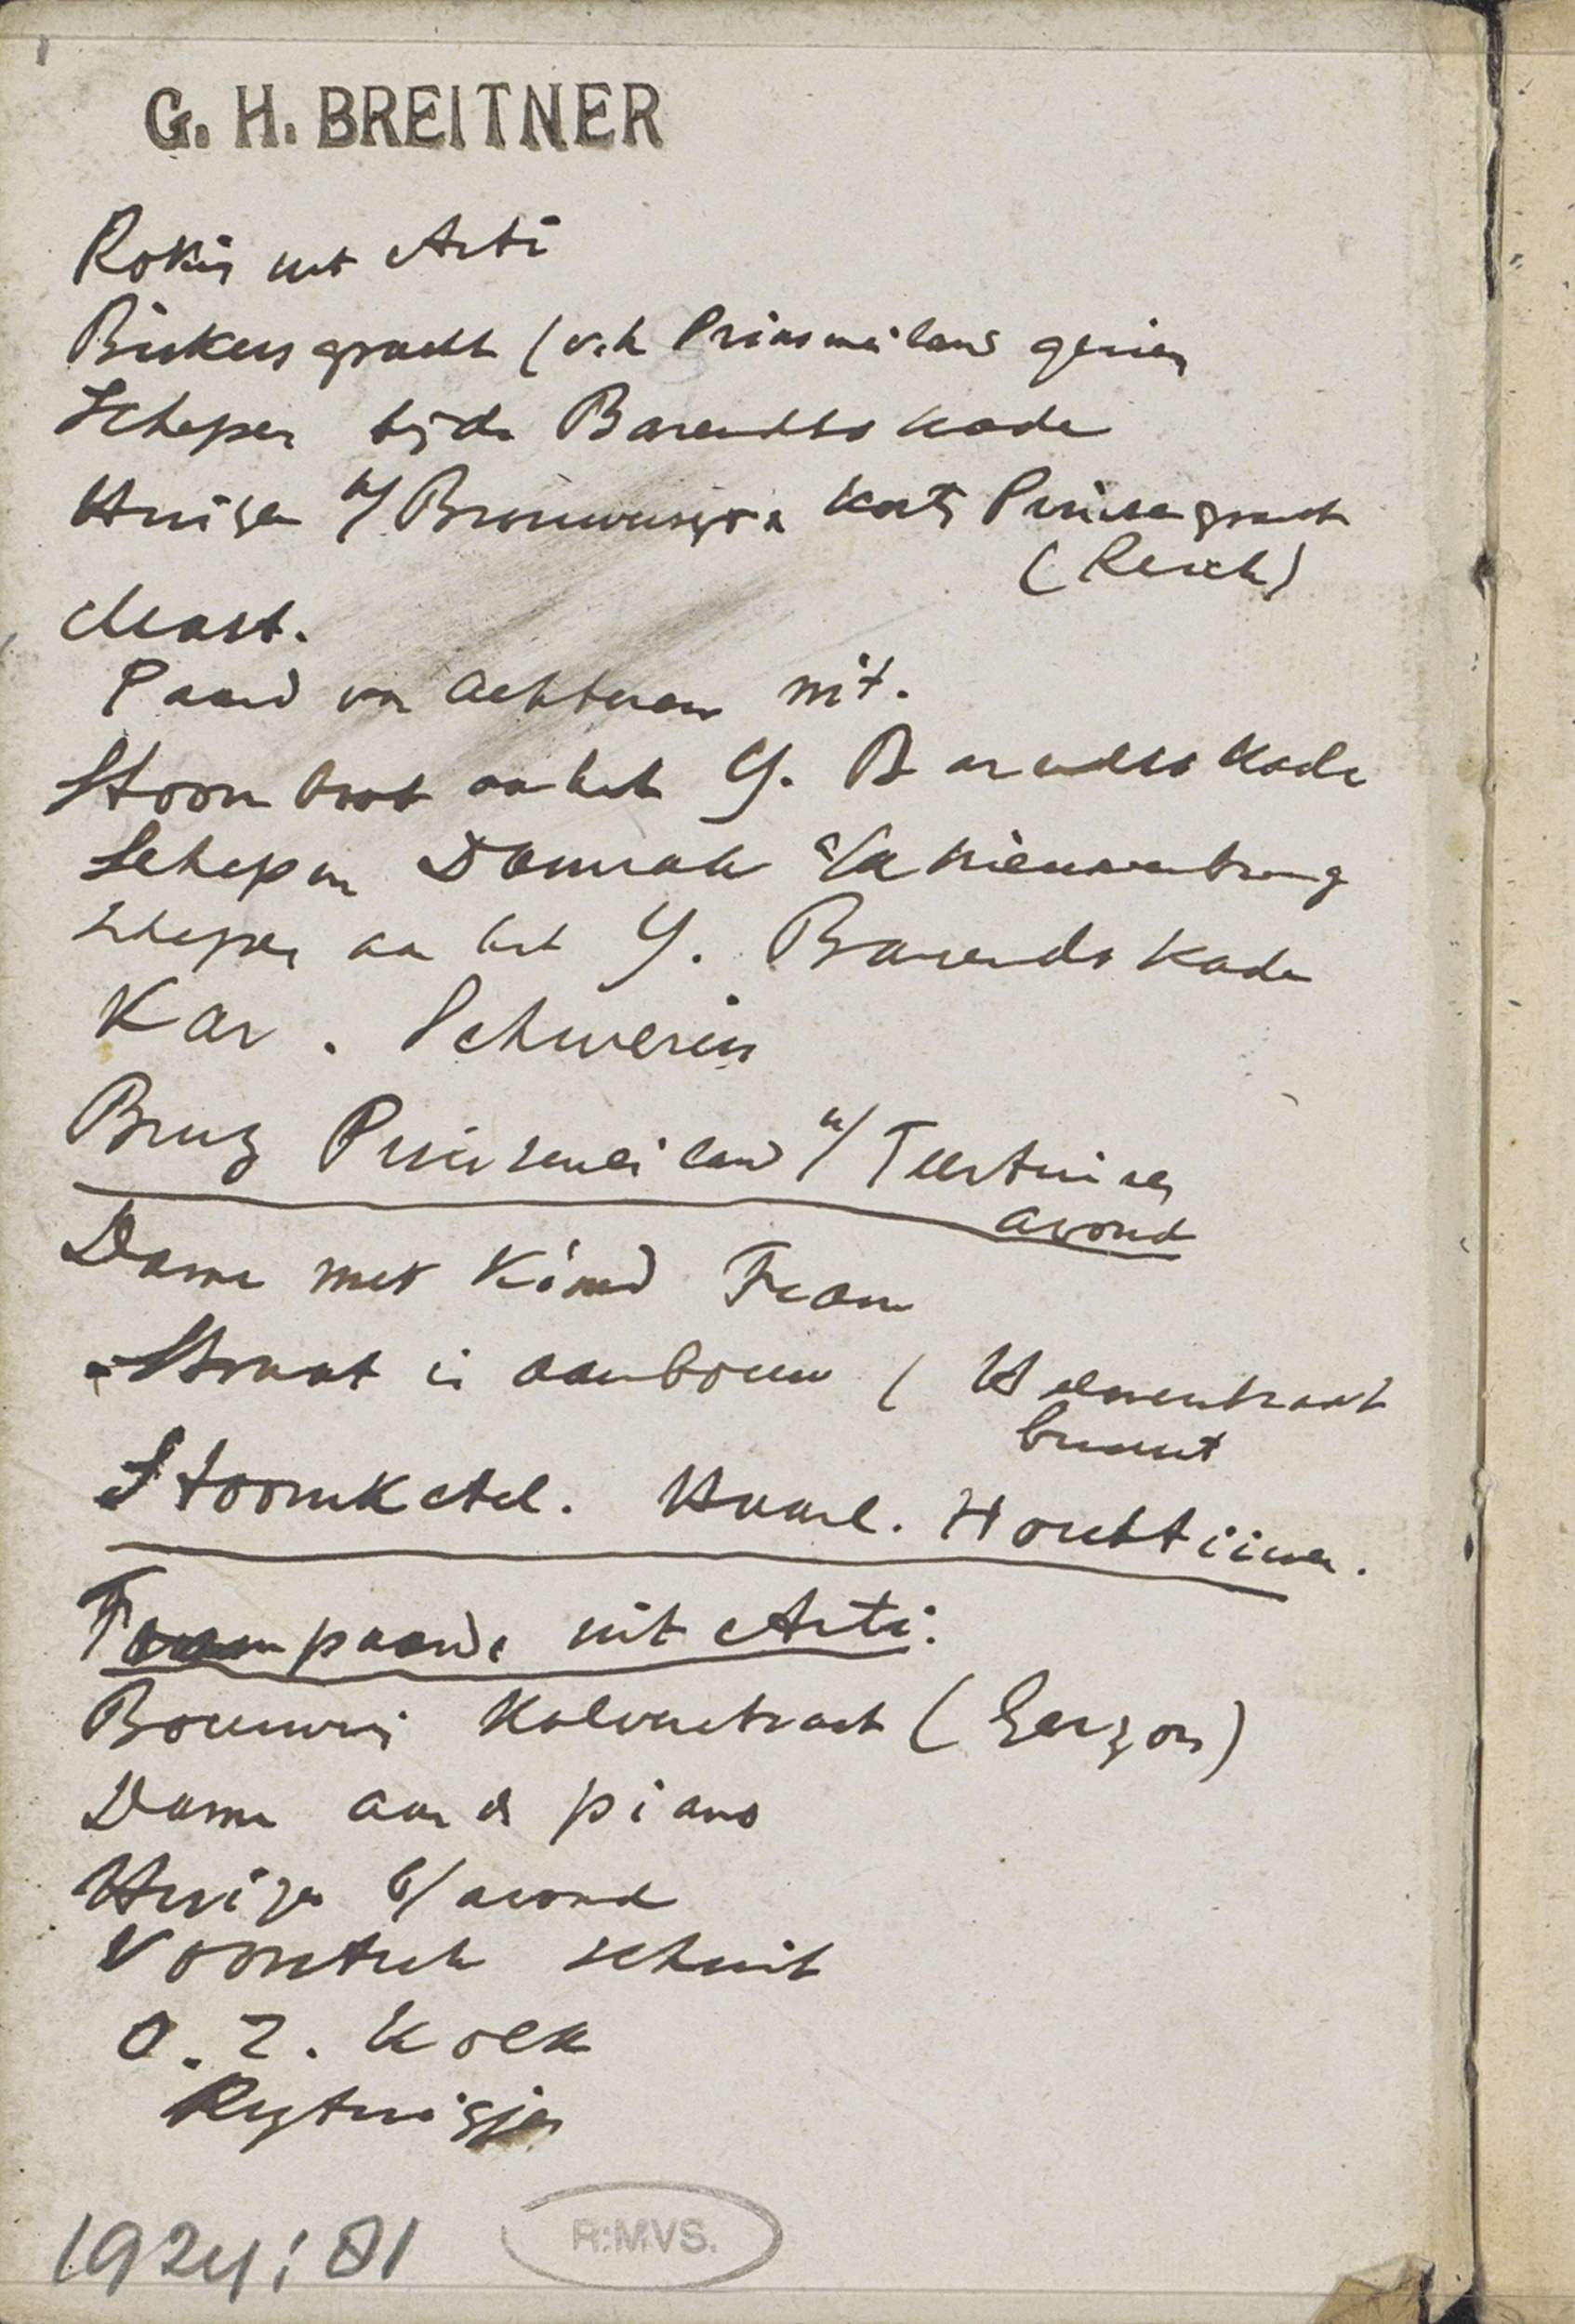 G. H. BREITNER
Rokin uit Arti
Bickersgracht (v.h. Prinseneiland gezien
Schepen bij de Barendsz kade
Huizen a/ Brouwersgr. x Korte Prinsengracht
(Reich)
Mast.
Paard van achteren uit.
Stoomboot aan het Y. Barendsz Kade
Schepen Damrak a/d Nieuwenbrug
Schepen aan het Y. Barends Kade
Kar. Schwerin
Brug Prinseneiland a/ Teertuinen
avond
Dame met Kind Tram
Straat in aanbouw ( Helmerstraat
buurt
Stoomketel. Haarl. Houttuinen.
Trampaarde uit Arti.
Bouwerij Kalverstraat (Gerzon)
Dame aan de piano
Huizen b/ avond
Voorstuk schuit
O. Z. Kolk
Rijtuigjes
1924:81
R:MVS.